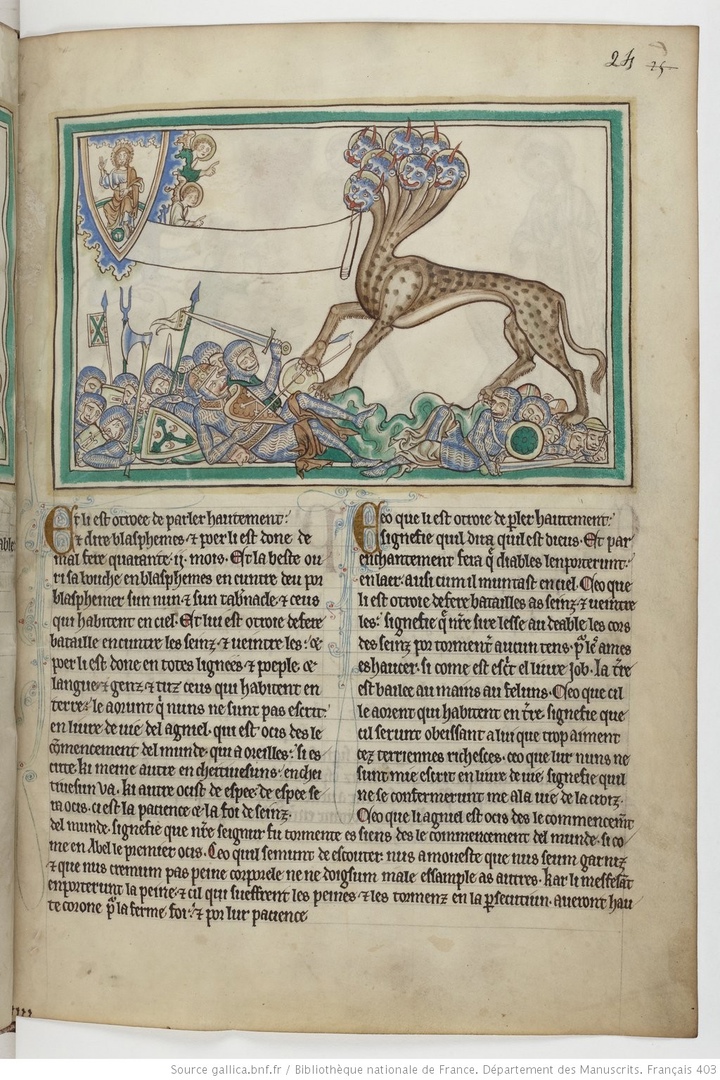 24 25
Et li est otroee de parler hautement:
⁊ dire blasphemes ⁊ poer li est done de
mal fere quarante ⁊ ij mois. Et la beste ou
ri sa buche en blasphemes en cuntre deu pur
blasphemer sun nun ⁊ sun tab̄nacle ⁊ ceus
qui habitent en ciel. Et lui est otroie defere
bataille encuntre les seinz ⁊ veintre les: ⁊
poer li est done en totes lignees ⁊ poeple ⁊
langue ⁊ genz ⁊ tuz ceus qui habitent en
terre: le aorunt q̄ nuns ne sunt pas escrit
en livre de vie del agniel. qui est ocis des le
cōmencement del munde. qui a oreilles: si es
cute. ki meine autre en cheitivesuns: en chei
tivesun va. ki autre ocist de espee: de espee se
ra ocis. ci est la pacience ⁊ la foi de seinz.
Ceo que li est otroie de pler hautement:
signefie quil dira quil est dieus. Et par
enchantement fera q̄ diables lenporterunt
en laer. ausi cum il muntast en ciel. Ceo que
li est otroie defere batailles as seinz ⁊ veintre
les: signefie q̄ nr̄e sire lesse au deable les cors
des seinz por torment̄ aucun tens. p̄ les ames
eshaucer. si come est esc̄t el livre Job. la t̄re
est bailee au mains au feluns. Ceo que cil
le aorent qui habitent en t̄re. signefie que
cil serunt obeissant a lui que trop aiment
cez terriennes richesces. ceo que lur nuns ne
sunt mie escrit en livre de vie. signefie quil
ne se confermerunt me a la vie de la croiz.
Ceo que li agniel est ocis des le commencem̄t
del munde. signefie que nr̄e seignur fu tormente es siens des le commencement del munde. si co
me en Abel le premier ocis. Ceo quil semunt de escouter nus amoneste que nus seum garniz
⁊ que nus cremum pas peine corporele ne ne doigsum male essample as autres. kar li meffesāt
enporterunt la peine ⁊ cil qui sueffrent les peines ⁊ les tormenz en la p̄secutiun. averont hau
te corone p̄ la ferme foi. ⁊ por lur pacience
Source gallica.bnf.fr / Bibliothèque nationale de France. Département des Manuscrits. Français 403